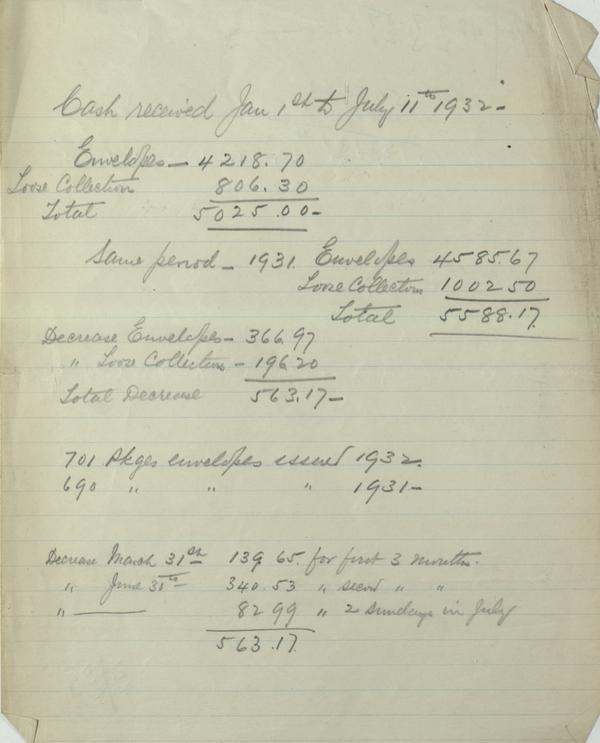 Cash received Jan 1st to July 11th 1932-
Envelopes - 4218.70
Loose Collection 806.30
Total 5025.00-
Same period - 1931. Envelopes 4585.67
Loose Collection 1002 50
Total 5588.17
Decrease Envelopes - 366.97
" Loose Collection - 196 20
Total Decrease 563.17-
701 Pkges envelopes issued 1932.
690 " " " 1931-
Decrease March 31st 139 65. for first 3 months.
" June 30th 340.53 " second " "
" 82 99 " 2 Sundays in July
563.17